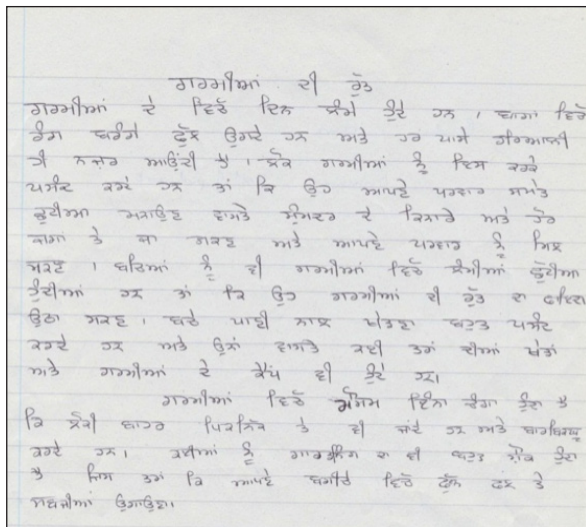 ਗਰਮੀਆਂ ਦੀ ਰੁੱਤ
ਗਰਮੀਆਂ ਦੇ ਵਿਚੋਂ ਦਿਨ ਲੰਮੇ ਹੁੰਦੇ ਹਨ । ਬਾਗਾਂ ਵਿਚੋਂ
ਰੰਗ ਬਰੰਗੇ ਫੁੱਲ ਉਗਦੇ ਹਨ ਅਤੇ ਹਰ ਪਾਸੇ ਹਰਿਆਲੀ
ਹੀ ਨਜ਼ਰ ਆਉਂਦੀ ਹੈ । ਲੋਕ ਗਰਮੀਆਂ ਨੂੰ ਇਸ ਕਰਕੇ
ਪਸੰਦ ਕਰਦੇ ਹਨ ਤਾਂ ਕਿ ਉਹ ਆਪਣੇ ਪਰਵਾਰ ਸਮੇਤ
ਛੁਟੀਆ ਮਨਾਉਣ ਵਾਸਤੇ ਸੰਮੁਦਰ ਦੇ ਕਿਨਾਰੇ ਅਤੇ ਹੋਰ
ਜਗਾਂ ਤੇ ਜਾ ਸਕਣ ਅਤੇ ਆਪਣੇ ਪਰਵਾਰ ਨੂੰ ਮਿਲ
ਸਕਣ । ਬੱਚਿਆਂ ਨੂੰ ਵੀ ਗਰਮੀਆਂ ਵਿਚੋਂ ਲੰਮੀਆਂ ਛੁੱਟੀਆ
ਹੁੰਦੀਆਂ ਹਨ ਤਾਂ ਕਿ ਉਹ ਗਰਮੀਆਂ ਦੀ ਰੁੱਤ ਦਾ ਫਾਇਦਾ
ਉਠਾ ਸਕਣ । ਬਚੇ ਪਾਣੀ ਨਾਲ ਖੇਡਣਾ ਬਹੁਤ ਪਸੰਦ
ਕਰਦੇ ਹਨ ਅਤੇ ਉਨਾਂ ਵਾਸਤੇ ਕਈ ਤਰਾਂ ਦੀਆਂ ਖੇਡਾਂ
ਅਤੇ ਗਰਮੀਆਂ ਦੇ ਕੈਂਪ ਵੀ ਹੁੰਦੇ ਹਨ।
ਗਰਮੀਆਂ ਵਿਚੋਂ ਮੌਸਮ ਇੰਨਾ ਚੰਗਾ ਹੁੰਦਾ ਹੈ
ਕਿ ਲੋਕੀ ਬਾਹਰ ਪਿਕਨਿਕ ਤੇ ਵੀ ਜਾਂਦੇ ਹਨ ਅਤੇ ਬਾਰਬਿਕਯੂ
ਕਰਦੇ ਹਨ। ਕਈਆਂ ਨੂੰ ਗਾਰਡਨਿੰਗ ਦਾ ਵੀ ਬਹੁਤ ਸ਼ੌਕ ਹੁੰਦਾ
ਹੈ ਜਿਸ ਤਰਾਂ ਕਿ ਆਪਣੇ ਬਗੀਚੇ ਵਿਚੋਂ ਫੁੱਲ ਫਲ ਤੇ
ਸਬਜੀਆਂ ਉਗਾਉਣਾ।